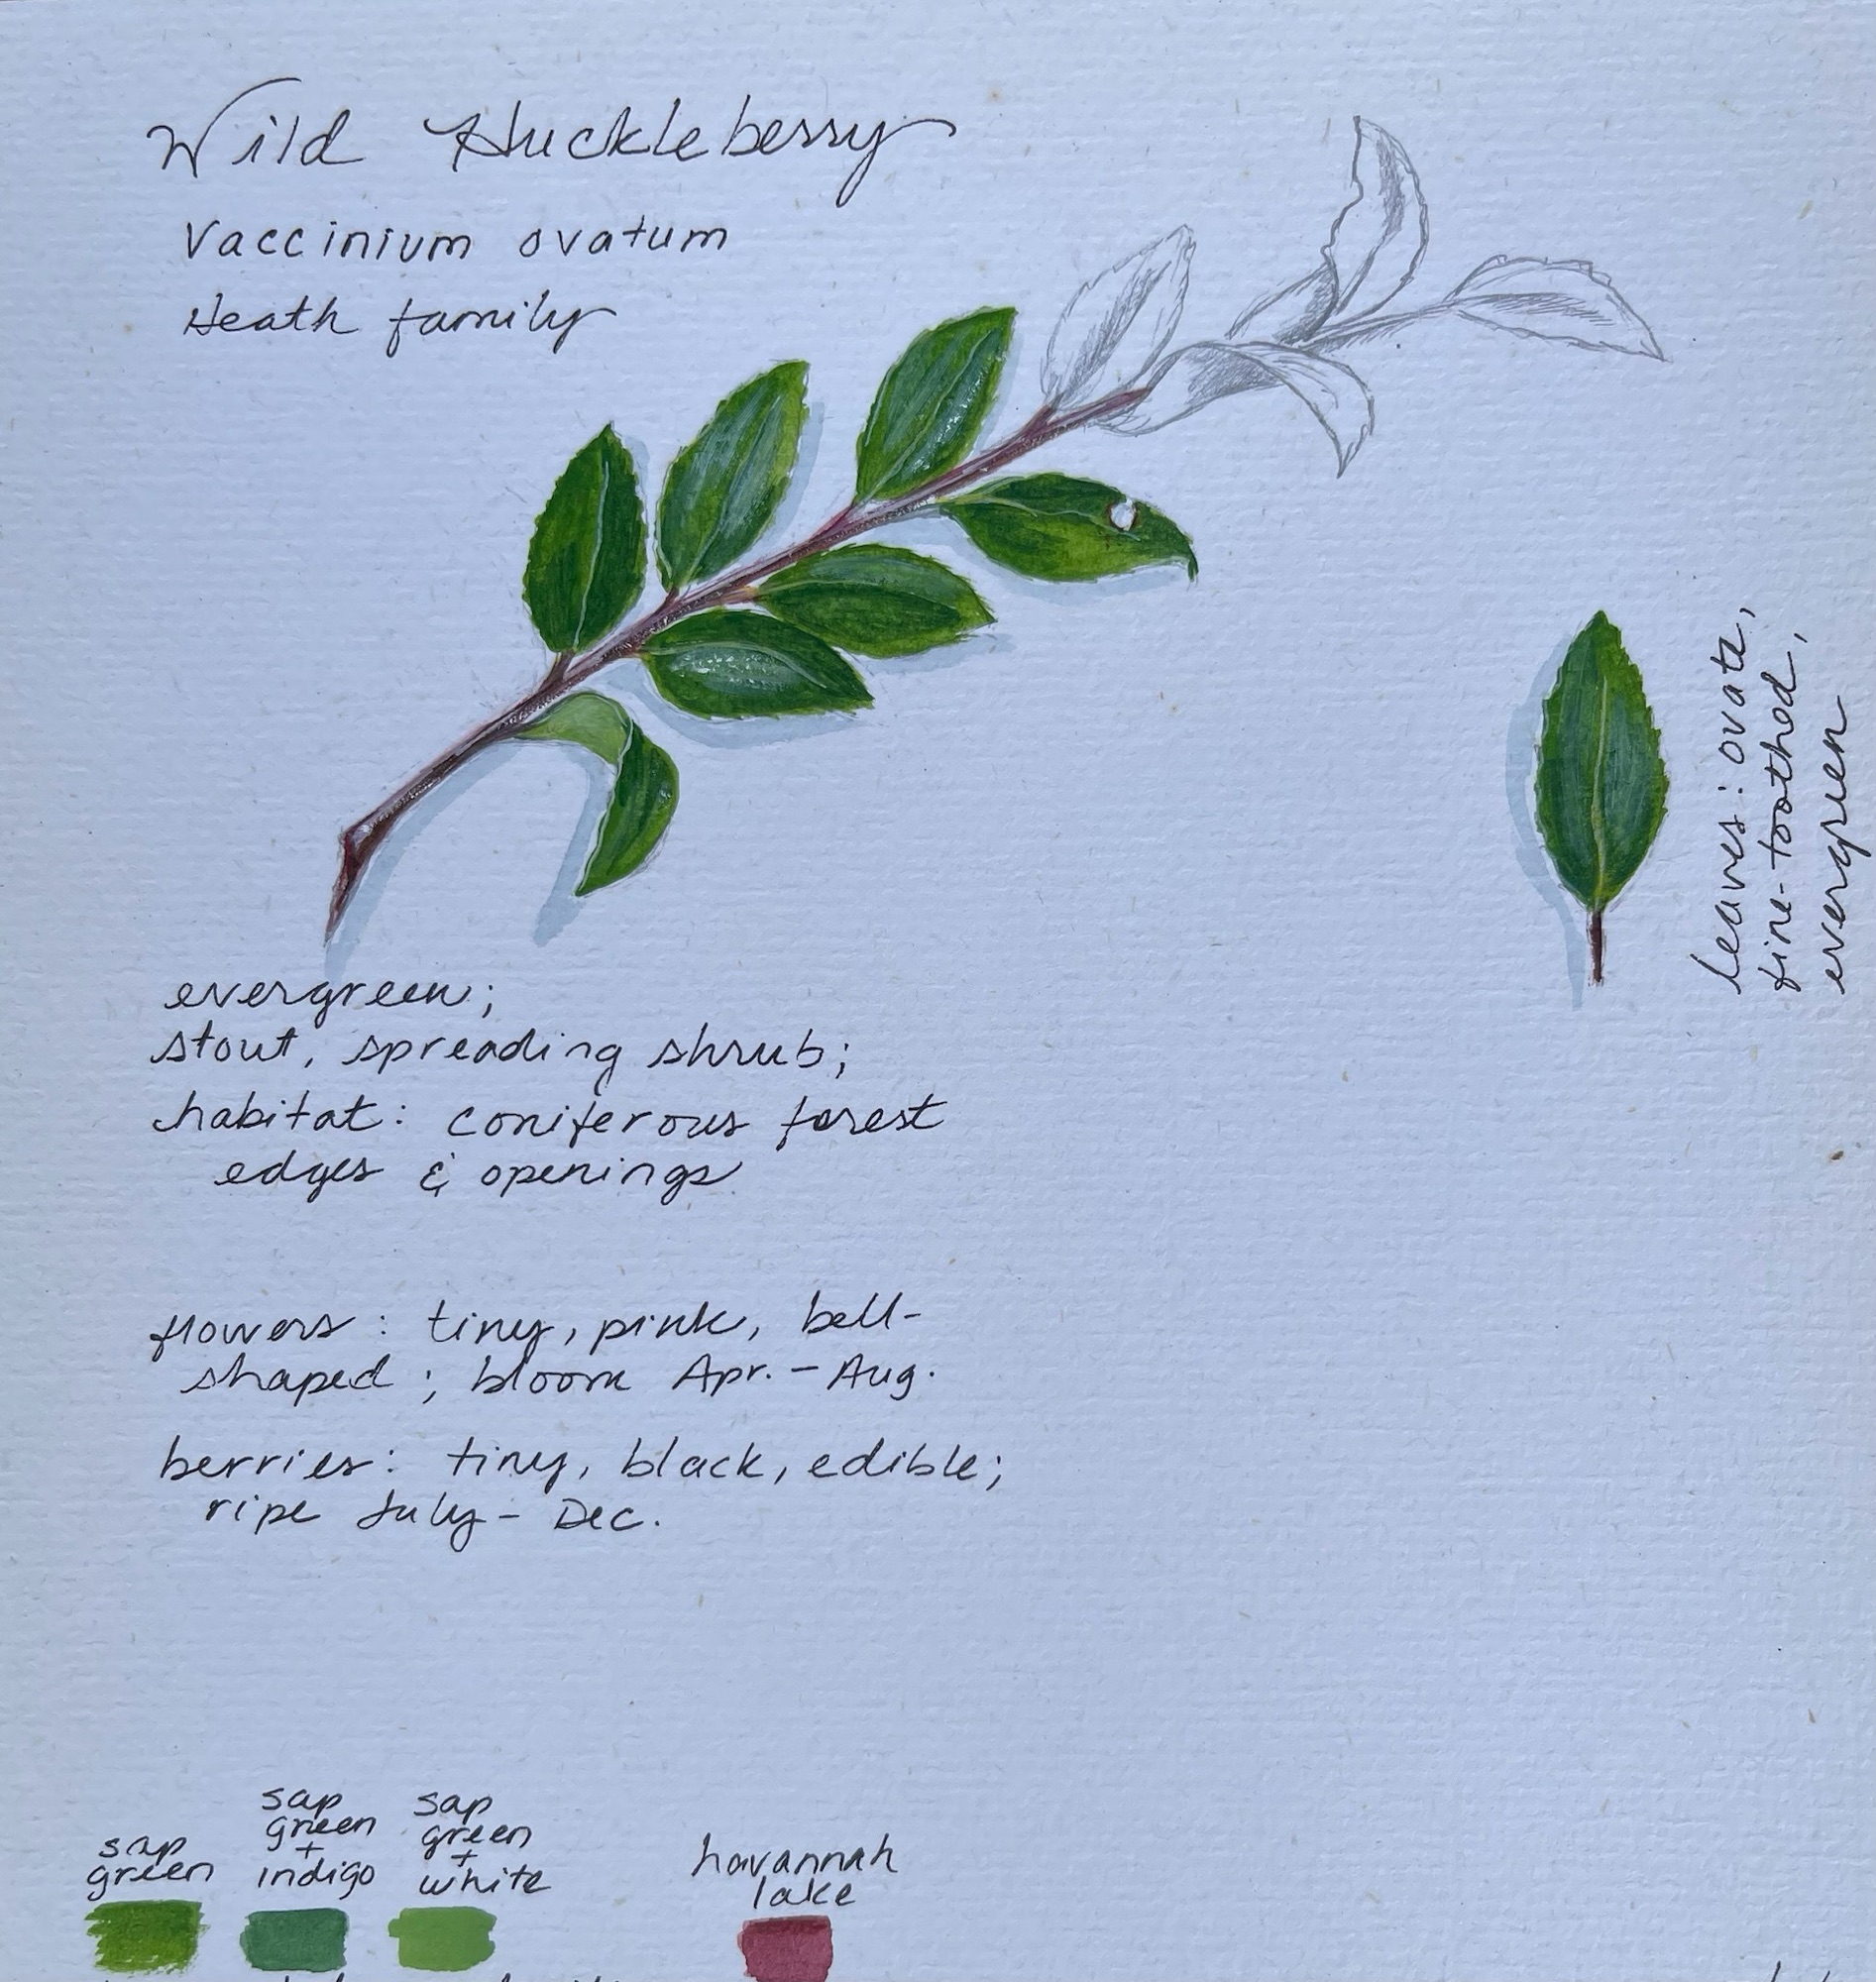 Wild Huckleberry
Vaccinium ovatum
Heath family
leaves: ovate,
fine-toothed,
evergreen
evergreen;
stout, spreading shrub;
habitat: coniferous forest
edges & openings
flowers: tiny, pink, bell-
shaped; bloom Apr. - Aug.
berries: tiny, black, edible;
ripe July - Dec.
sap
green
sap
green
+
indigo
sap
green
+
white
havannah
lake